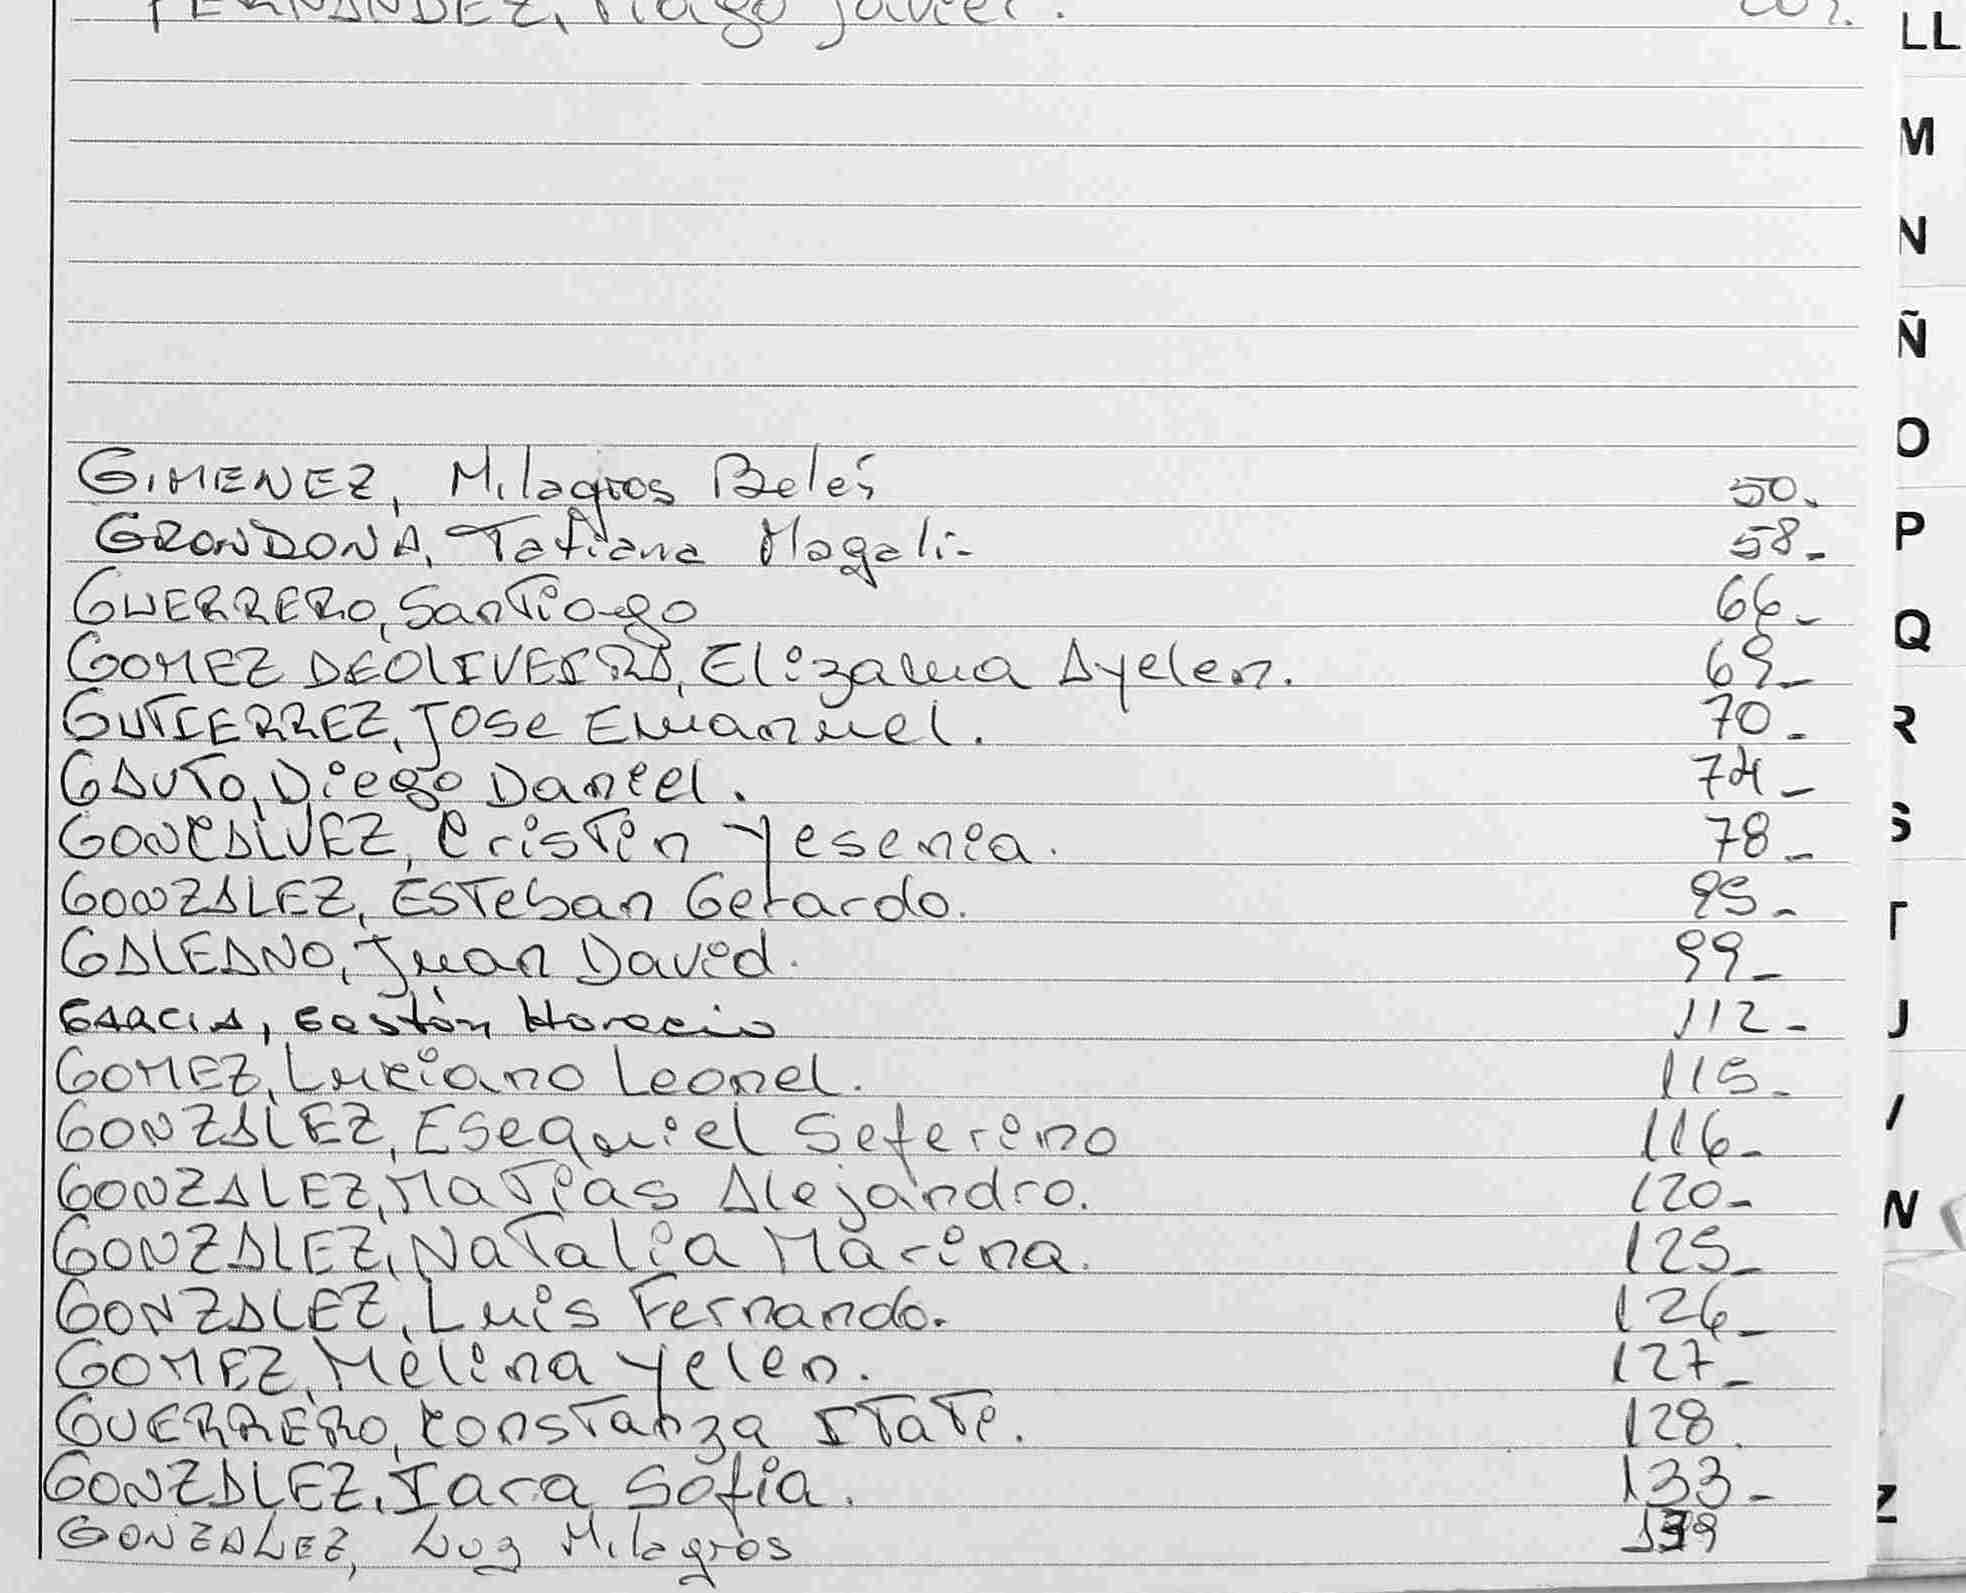 FERNANDEZ, Tiago Javier. 207.
LL
M
N
Ñ
O
GIMENEZ, Milagros Belén 50.
GRONDONA, Tatiana Magali- 58-
P
GUERRERO, Santiago 66-
Q
GOMEZ DEOLIVEIRA, Elizama Ayelen. 69-
GUTIERREZ, Jose Emanuel. 70-
R
GAUTO, Diego Daniel. 74-
GONCALVEZ, Cristin Yesenia. 78-
S
GONZALEZ, Esteban Gerardo. 95-
T
GALEANO, Juan David. 99-
GARCIA, Gastón Horacio 112-
U
GOMEZ, Luciano Leonel. 115-
GONZALEZ, Esequiel Seferino 116-
V
GONZALEZ, Matias Alejandro. 120-
W
GONZALEZ, Natalia Marina. 125-
GONZALEZ, Luis Fernando. 126-
GOMEZ, Melina Yelen. 127-
GUERRERO, Constanza Itati. 128.
GONZALEZ, Iara Sofia. 133-
Z
GONZALEZ, Luz Milagros 139